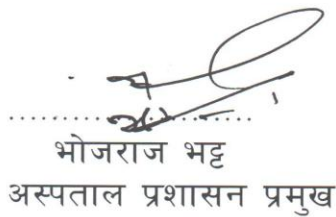 भोजराज भट्ट
अस्पताल प्रशासन प्रमुख